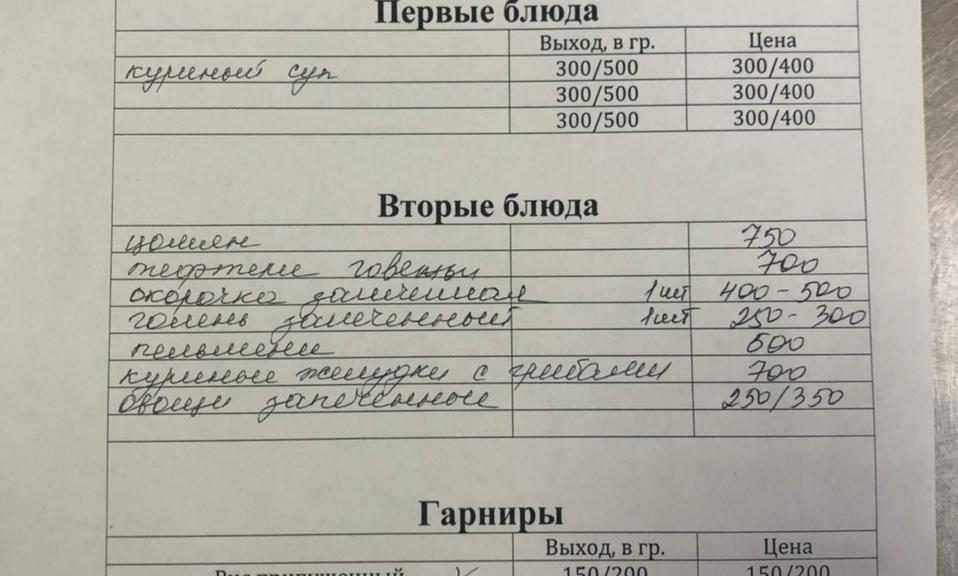 Первые блюда
Выход, в гр. Цена
куриный суп 300/500 300/400
300/500 300/400
300/500 300/400
Вторые блюда
цомян 750
тефтели говяжьи 700
окорочка запеченная 1шт 400-500
голень запеченный 1шт 250-300
пельмени 600
куриные желудки с грибами 700
овощи запеченные 250/350
Гарниры
Выход, в гр. Цена
Рис припущенный 150/200 150/200